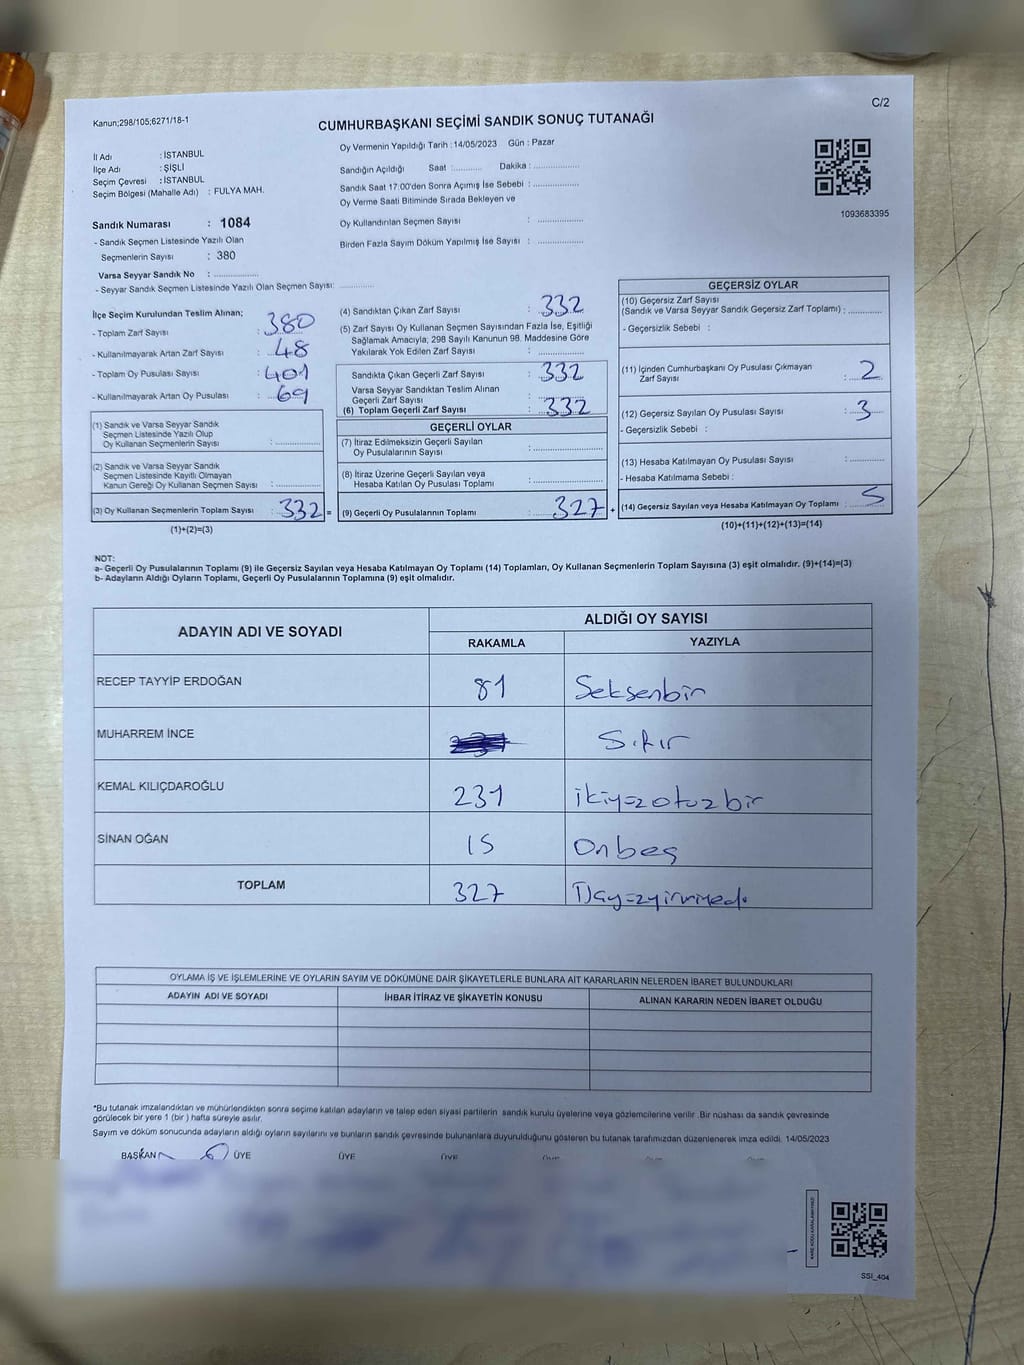 C/2
Kanun;298/105;6271/18-1
CUMHURBAŞKANI SEÇİMİ SANDIK SONUÇ TUTANAĞI
Oy Vermenin Yapıldığı Tarih : 14/05/2023 Gün : Pazar
İl Adı : İSTANBUL
İlçe Adı : ŞİŞLİ
Seçim Çevresi : İSTANBUL
Seçim Bölgesi (Mahalle Adı) : FULYA MAH.
Sandığın Açıldığı Saat :............ Dakika : ..................
Sandık Saat 17:00'den Sonra Açımış İse Sebebi : ..................
Oy Verme Saati Bitiminde Sırada Bekleyen ve
Oy Kullandırılan Seçmen Sayısı : ..................
Birden Fazla Sayım Döküm Yapılmış İse Sayısı : ..................
1093683395
Sandık Numarası : 1084
- Sandık Seçmen Listesinde Yazılı Olan
Seçmenlerin Sayısı : 380
Varsa Seyyar Sandık No : ..................
- Seyyar Sandık Seçmen Listesinde Yazılı Olan Seçmen Sayısı: ..............
İlçe Seçim Kurulundan Teslim Alınan;
- Toplam Zarf Sayısı : 380
- Kullanılmayarak Artan Zarf Sayısı : 48
- Toplam Oy Pusulası Sayısı : 401
- Kullanılmayarak Artan Oy Pusulası : 69
(1) Sandık ve Varsa Seyyar Sandık
Seçmen Listesinde Yazılı Olup
Oy Kullanan Seçmenlerin Sayısı : ..................
(2) Sandık ve Varsa Seyyar Sandık
Seçmen Listesinde Kayıtlı Olmayan
Kanun Gereği Oy Kullanan Seçmen Sayısı : ..................
(3) Oy Kullanan Seçmenlerin Toplam Sayısı : 332 =
(1)+(2)=(3)
(4) Sandıktan Çıkan Zarf Sayısı : 332
(5) Zarf Sayısı Oy Kullanan Seçmen Sayısından Fazla İse, Eşitliği
Sağlamak Amacıyla; 298 Sayılı Kanunun 98. Maddesine Göre
Yakılarak Yok Edilen Zarf Sayısı : ..................
Sandıkta Çıkan Geçerli Zarf Sayısı : 332
Varsa Seyyar Sandıktan Teslim Alınan
Geçerli Zarf Sayısı : ..................
(6) Toplam Geçerli Zarf Sayısı : 332
GEÇERLİ OYLAR
(7) İtiraz Edilmeksizin Geçerli Sayılan
Oy Pusulalarının Sayısı : ..................
(8) İtiraz Üzerine Geçerli Sayılan veya
Hesaba Katılan Oy Pusulası Toplamı : ..................
(9) Geçerli Oy Pusulalarının Toplamı : 327 +
GEÇERSİZ OYLAR
(10) Geçersiz Zarf Sayısı
(Sandık ve Varsa Seyyar Sandık Geçersiz Zarf Toplamı) : ............
- Geçersizlik Sebebi :
(11) İçinden Cumhurbaşkanı Oy Pusulası Çıkmayan
Zarf Sayısı : 2
(12) Geçersiz Sayılan Oy Pusulası Sayısı : 3
- Geçersizlik Sebebi :
(13) Hesaba Katılmayan Oy Pusulası Sayısı : ............
- Hesaba Katılmama Sebebi :
(14) Geçersiz Sayılan veya Hesaba Katılmayan Oy Toplamı : 5
(10)+(11)+(12)+(13)=(14)
NOT:
a- Geçerli Oy Pusulalarının Toplamı (9) ile Geçersiz Sayılan veya Hesaba Katılmayan Oy Toplamı (14) Toplamları, Oy Kullanan Seçmenlerin Toplam Sayısına (3) eşit olmalıdır. (9)+(14)=(3)
b- Adayların Aldığı Oyların Toplamı, Geçerli Oy Pusulalarının Toplamına (9) eşit olmalıdır.
ADAYIN ADI VE SOYADI
ALDIĞI OY SAYISI
RAKAMLA YAZIYLA
RECEP TAYYİP ERDOĞAN 81 Seksenbir
MUHARREM İNCE Sıfır
KEMAL KILIÇDAROĞLU 231 ikiyüzotuzbir
SİNAN OĞAN 15 Onbeş
TOPLAM 327
OYLAMA İŞ VE İŞLEMLERİNE VE OYLARIN SAYIM VE DÖKÜMÜNE DAİR ŞİKAYETLERLE BUNLARA AİT KARARLARIN NELERDEN İBARET BULUNDUKLARI
ADAYIN ADI VE SOYADI İHBAR İTİRAZ VE ŞİKAYETİN KONUSU ALINAN KARARIN NEDEN İBARET OLDUĞU
*Bu tutanak imzalandıktan ve mühürlendikten sonra seçime katılan adayların ve talep eden siyasi partilerin sandık kurulu üyelerine veya gözlemcilerine verilir. Bir nüshası da sandık çevresinde
görülecek bir yere 1 (bir ) hafta süreyle asılır.
Sayım ve döküm sonucunda adayların aldığı oyların sayılarını ve bunların sandık çevresinde bulunanlara duyurulduğunu gösteren bu tutanak tarafımızdan düzenlenerek imza edildi. 14/05/2023
BAŞKAN ÜYE ÜYE ÜYE
SSI_404